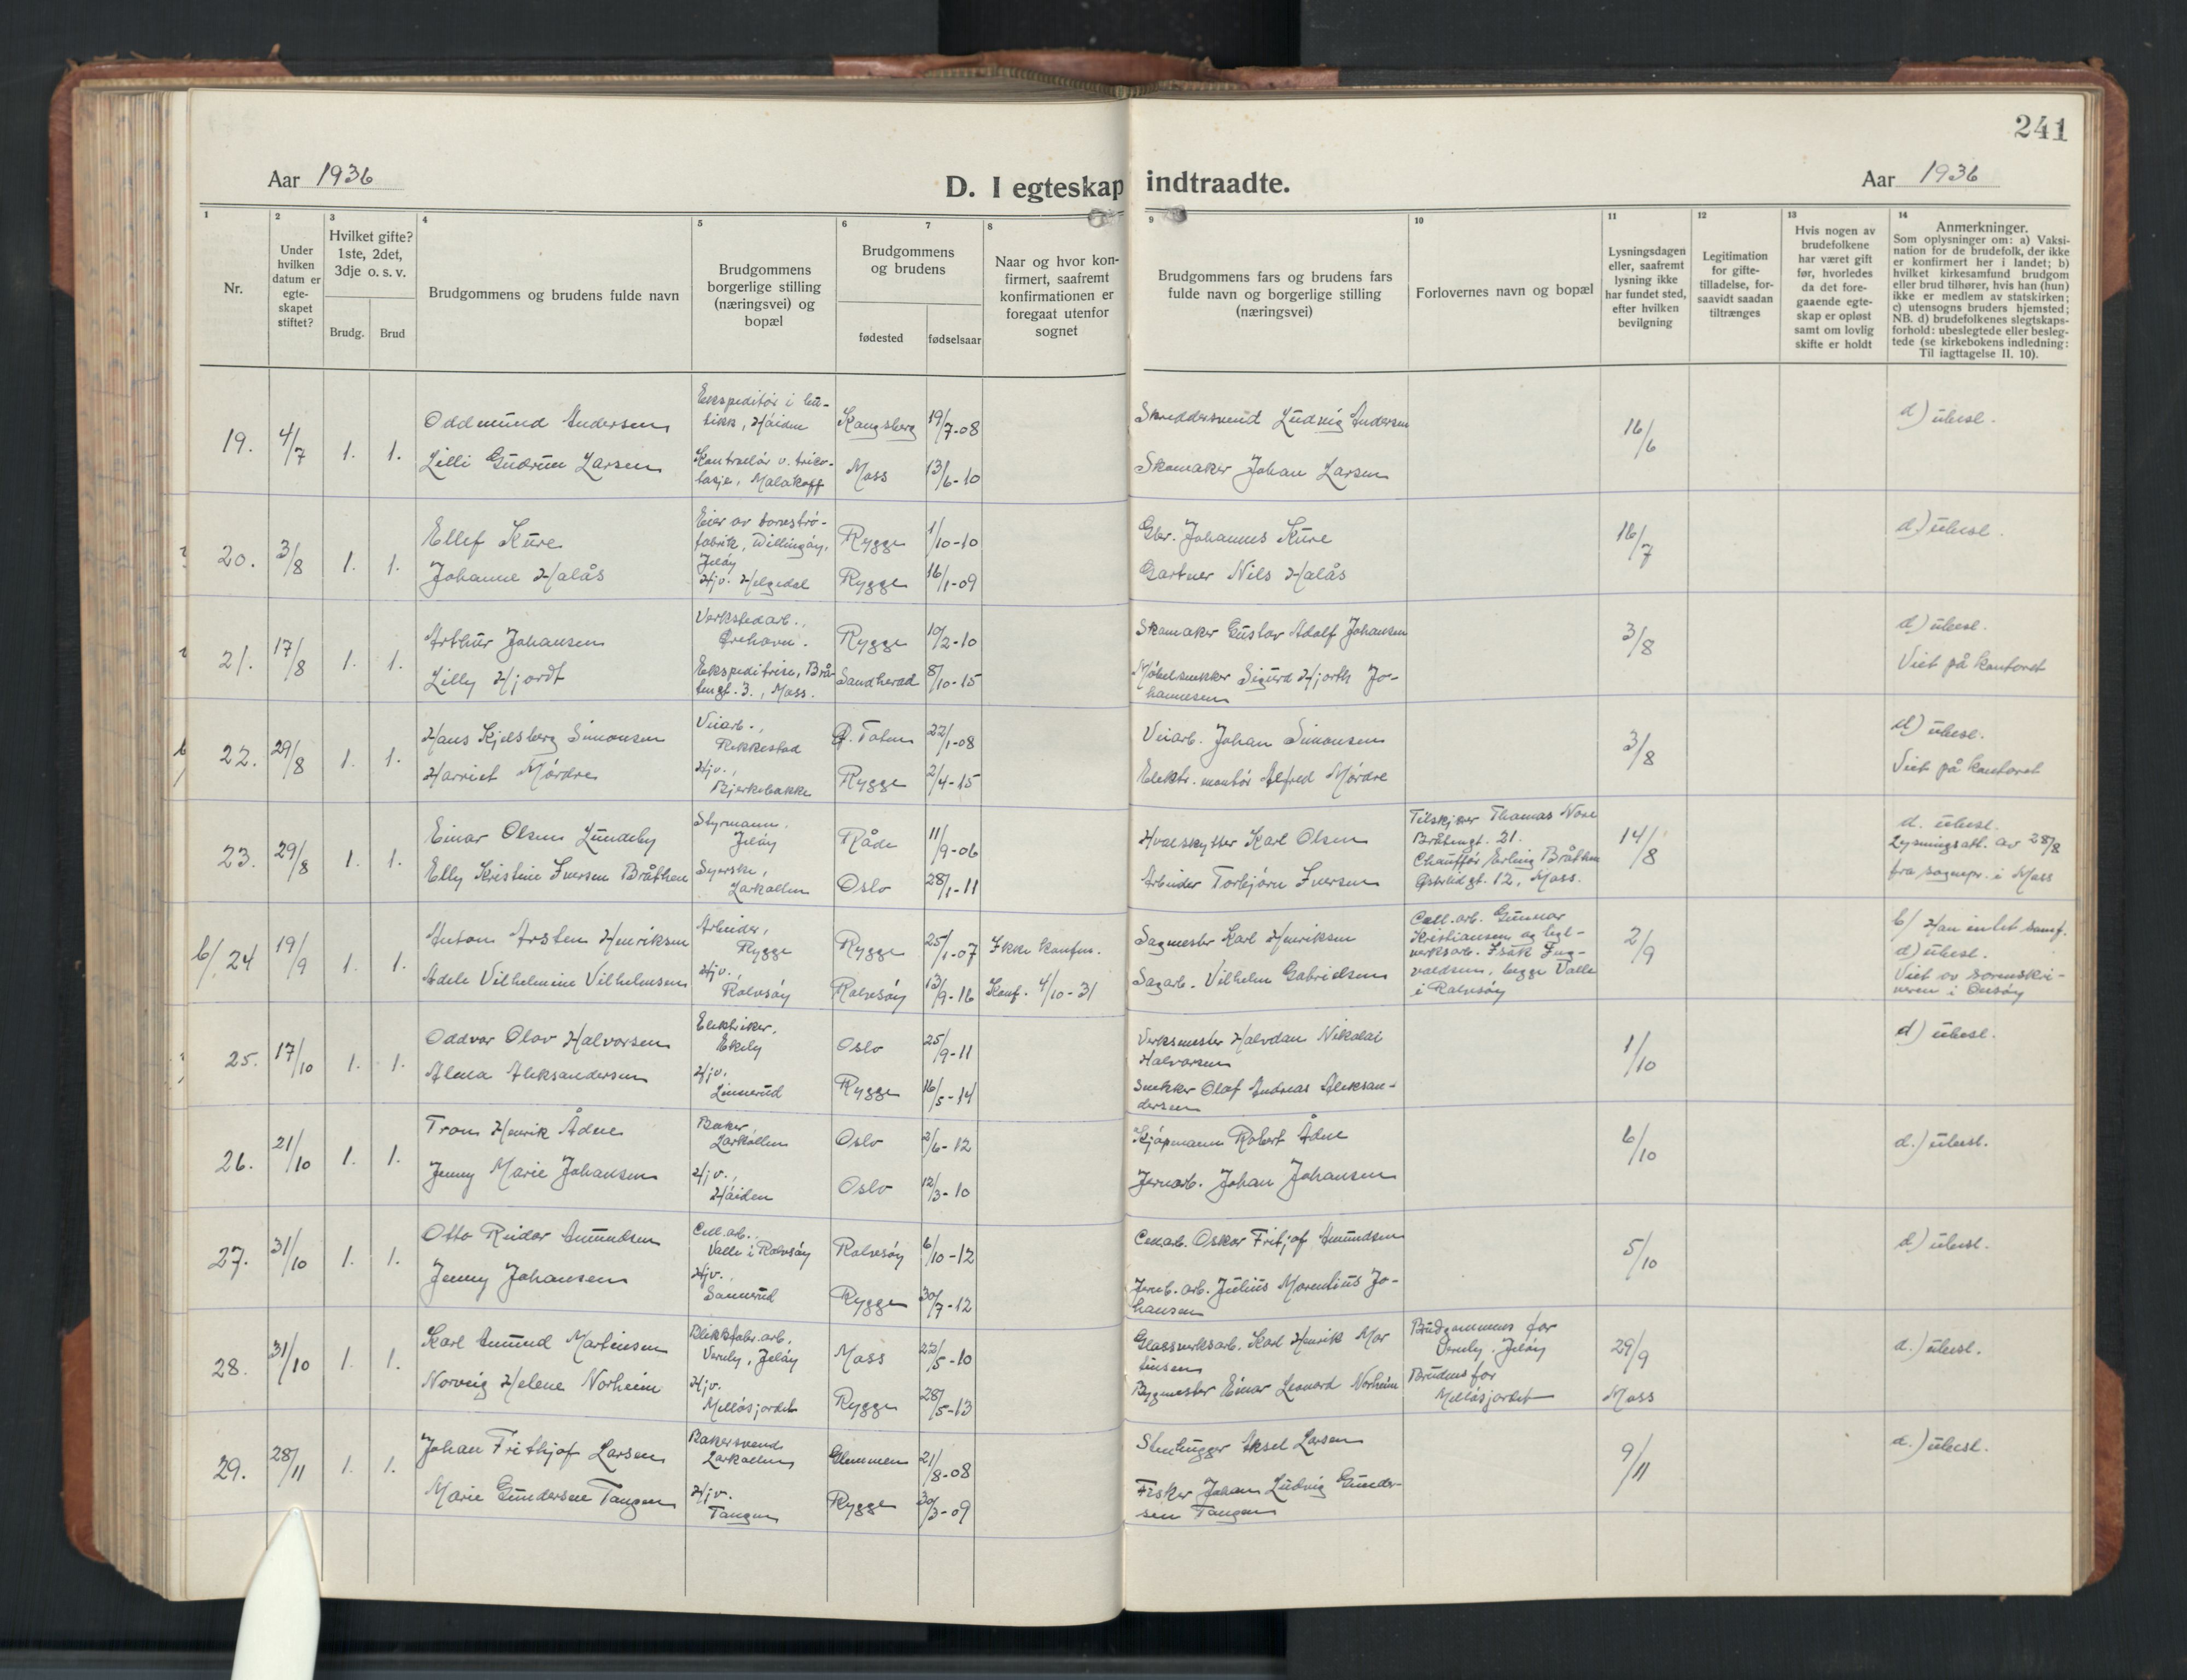 241
Aar 1936
D. I egteskap indtraadte.
Aar 1936
1
Nr.
2
Under
hvilken
datum er
egte-
skapet
stiftet?
3
Hvilket gifte?
1ste, 2det,
3dje o. s. v.
Brudg.
Brud
4
Brudgommens og brudens fulde navn
5
Brudgommens
borgerlige stilling
(næringsvei) og
bopæl
6
7
Brudgommens
og brudens
fødested
fødselsaar
8
Naar og hvor kon-
firmert, saafremt
konfirmationen er
foregaat utenfor
sognet
9
Brudgommens fars og brudens fars
fulde navn og borgerlige stilling
(næringsvei)
10
Forlovernes navn og bopæl
11
Lysningsdagen
eller, saafremt
lysning ikke
har fundet sted,
efter hvilken
bevilgning
12
Legitimation
for gifte-
tilladelse, for-
saavidt saadan
tiltrænges
13
Hvis nogen av
brudefolkene
har været gift
før, hvorledes
da det fore-
gaaende egte-
skap er opløst
samt om lovlig
skifte er holdt
14
Anmerkninger.
Som oplysninger om: a) Vaksi-
nation for de brudefolk, der ikke
er konfirmert her i landet; b)
hvilket kirkesamfund brudgom
eller brud tilhører, hvis han (hun)
ikke er medlem av statskirken;
c) utensogns bruders hjemsted;
NB. d) brudefolkenes slegtskaps-
forhold: ubeslegtede eller besleg-
tede (se kirkebokens indledning:
Til iagttagelse II. 10).
19. 4/7 1. 1.
Oddmund Andersen
Lilli Gudrun Larsen
Ekspeditør i bu-
tikk, Høiden
Kontrollør v. triko-
tasje, Malakoff
Kongsberg 19/7-08
Moss 13/6-10
Skreddersvend Ludvig Andersen
Skomaker Johan Larsen
16/6
d) ubesl.
20. 3/8 1. 1.
Ellef Kure
Johanne Halås
Eier av torvstrø-
fabrik, Dillingøy,
Jeløy
Hjv. Helgedal
Rygge 1/10-10
Rygge 16/1-09
Gbr. Johannes Kure
Gartner Nils Halås
16/7
d) ubesl.
21. 17/8 1. 1.
Arthur Johansen
Lilly Hjordt
Verkstedarb.,
Ørehavn.
Ekspeditrise, Brå-
tengt. 3., Moss.
Rygge 10/2-10
Sandherad 8/10-15
Skomaker Gustav Adolf Johansen
Møbelsnekker Sigurd Hjorth Jo-
hannesen
3/8
d) ubesl.
Viet på kontoret
22. 29/8 1. 1.
Hans Kjelsberg Simonsen
Harriet Mørdre
Veiarb.,
Rakkestad
Hjv.,
Bjerkebakke
Ø. Toten 22/1-08
Rygge 2/4-15
Veiarb. Johan Simonsen
Elektr. montør Alfred Mørdre
3/8
d) ubesl.
Viet på kontoret
23. 29/8 1. 1.
Einar Olsen Lundeby
Elly Kristine Iversen Bråthen
Styrmann,
Jeløy
Syerske,
Larkollen
Råde 11/9-06
Oslo 28/1-11
Hvalskytter Karl Olsen
Arbeider Torbjørn Iversen
Tilskjærer Thomas
Bråtengt. 21.
Chauffør Erling Bråthen
gt. 12, Moss.
14/8
d. ubesl.
Lysningsatt. av 28/8
fra sognepr. i Moss
b/ 24 19/9 1. 1.
Anton Arsten Henriksen
Adele Vilhelmine Vilhelmsen
Arbeider,
Rygge
Hjv.,
Rolvsøy
Rygge 25/1-07
Rolvsøy 13/9-16
Ikke konfm.
Konf. 4/10-31
Sagmester Karl Henriksen
Sagarb. Vilhelm Gabrielsen
Cell.arb. Gunnar
Kristiansen og tegl-
verksarb. Isak Ing-
valdsen, begge Valle
i Rolvsøy
2/9
b/ Han intet samf.
d) ubesl.
Viet av sorenskri-
veren i Onsøy
25. 17/10 1. 1.
Oddvar Olav Halvorsen
Alma Aleksandersen
Elektriker,
Ekely
Hjv.
Linnerud
Oslo 25/9-11
Rygge 16/5-14
Verksmester Halvdan Nikolai
Halvorsen
Snekker Olaf Andreas Aleksan-
dersen
1/10
d) ubesl.
26. 21/10 1. 1.
Tron Henrik Ådne
Jenny Marie Johansen
Baker
Larkollen
Hjv.,
Høiden
Oslo 2/6-12
Oslo 12/3-10
Kjøpmann Robert Ådne
Jernarb. Johan Johansen
6/10
d.) ubesl.
27. 31/10 1. 1.
Otto Reidar Amundsen
Jenny Johansen
Cell.arb.,
Valle i Rolvsøy
Hjv.,
Sannerud
Rolvsøy 6/10-12
Rygge 30/7-12
Cell.arb. Oskar Fritjof Amundsen
Jernb. arb. Julius Morentius Jo-
hansen
5/10
d) ubesl.
28. 31/10 1. 1.
Karl Amund Martinsen
Norveig Helene Norheim
Blikkfabr.arb.
Varnly, Jeløy
Hjv.
Melløsjordet
Moss 22/5-10
Rygge 28/5-13
Glassverksarb. Karl Henrik Mar
tinsen
Bygmester Einar Leonard Norheim
Brudgommens far
Varnly, Jeløy
Brudens far
Melløsjordet
29/9
Moss
d.) ubesl.
29. 28/11 1. 1.
Johan Frithjof Larsen
Marie Gundersen Tangen
Bakersvend
Larkollen
Hjv.
Tangen
Glemmen 21/8-08
Rygge 30/3-09
Stenhugger Aksel Larsen
Fisker Johan Ludvig Gunder-
sen Tangen
9/11
d.) ubesl.